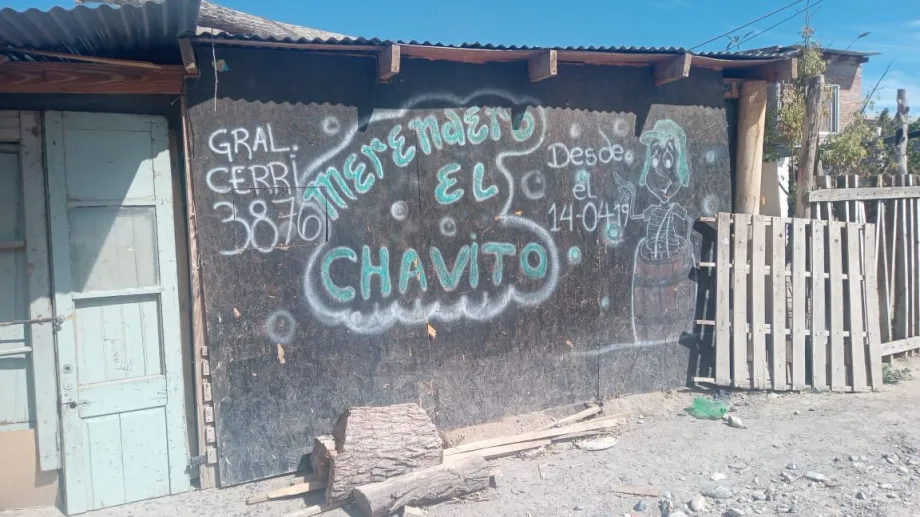 GRAL.
CERRI
3876
Merendero
EL
CHAVITO
Desde
el
14-04-19